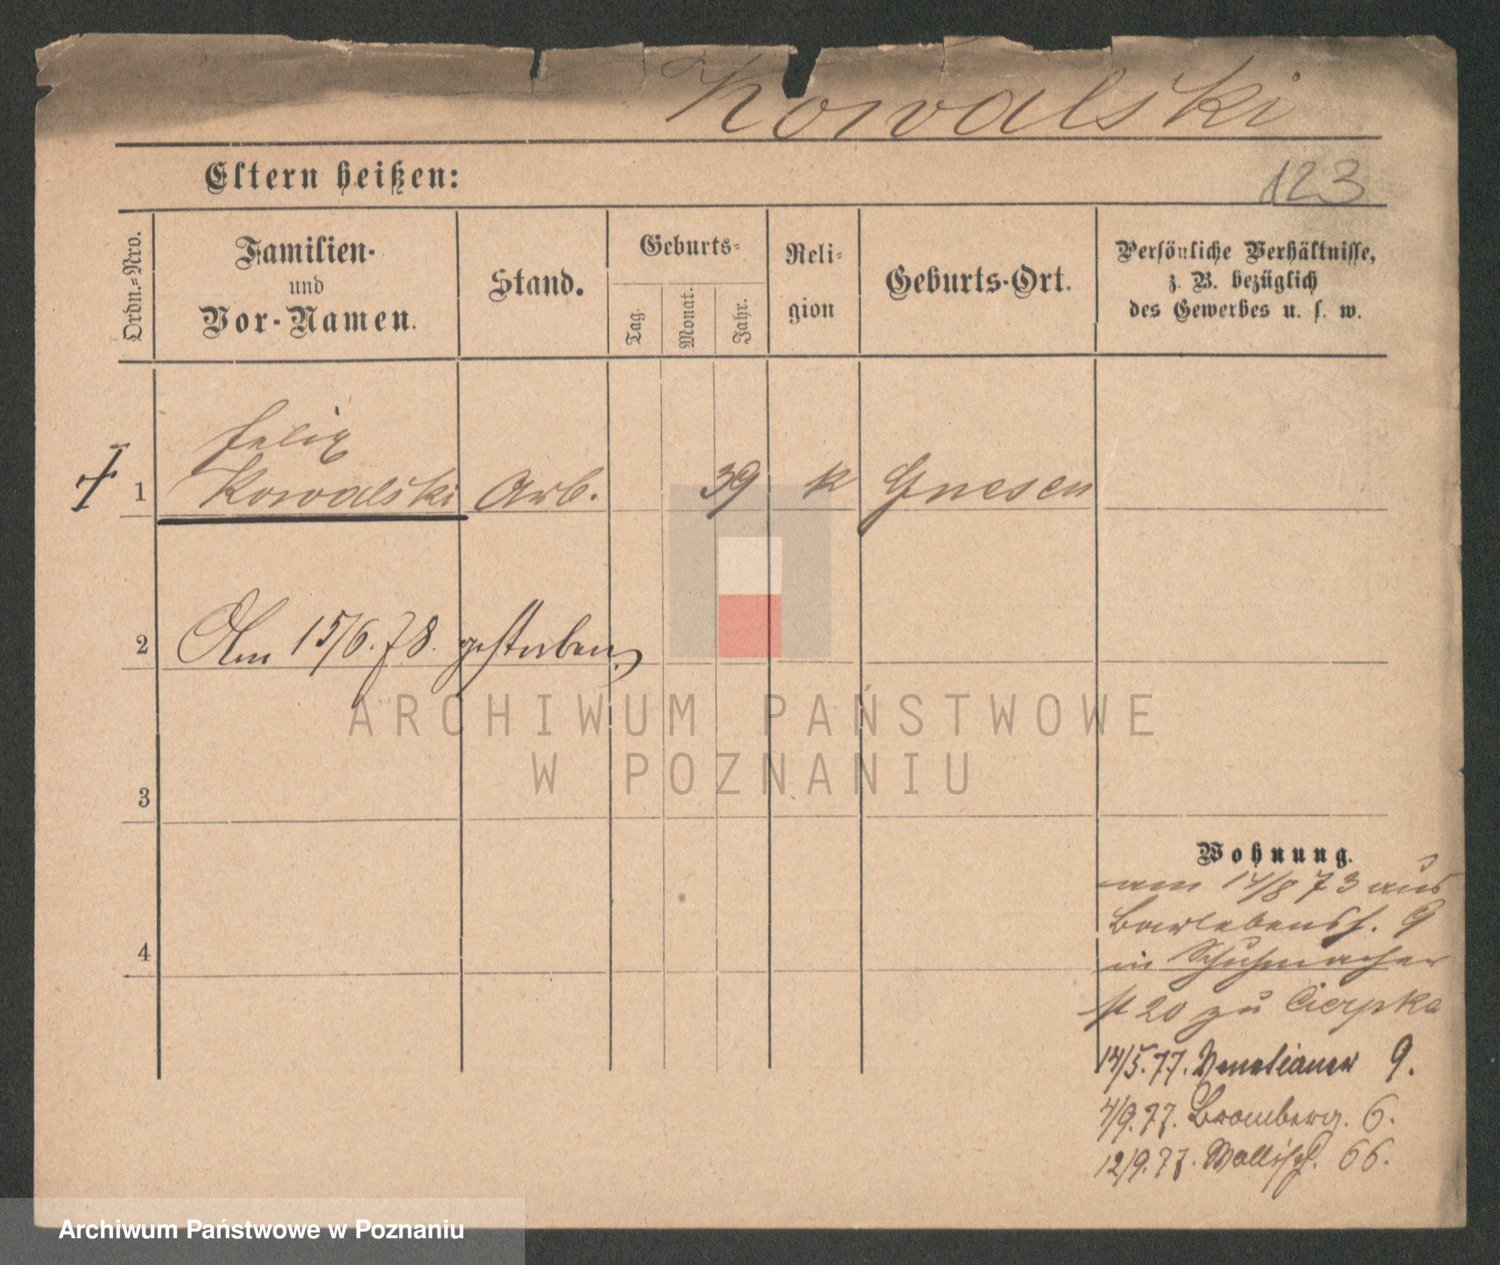 Kowalski
Eltern heißen:
123
Ordn.-Nro.
Familien-
und
Vor-Namen.
Stand.
Geburts-
Tag.
Monat.
Jahr.
Reli-
gion
Geburts-Ort.
Persönliche Verhältnisse,
z. B. bezüglich
des Gewerbes u. s. w.
Felix
1 Kowalski Arb. 39 k Gnesen
2 Am 15/6.78. gestorben
ARCHIWUM PAŃSTWOWE
W POZNANIU
3
Wohnung.
am 14/8 73 aus
Barlebensf. 9
4 in Schuhmacher
st 20 zu Cierpka
14/5.77. Venetianer 9.
4/9.77. Bromberg. 6.
12/9.77. Wallisch. 66.
Archiwum Państwowe w Poznaniu